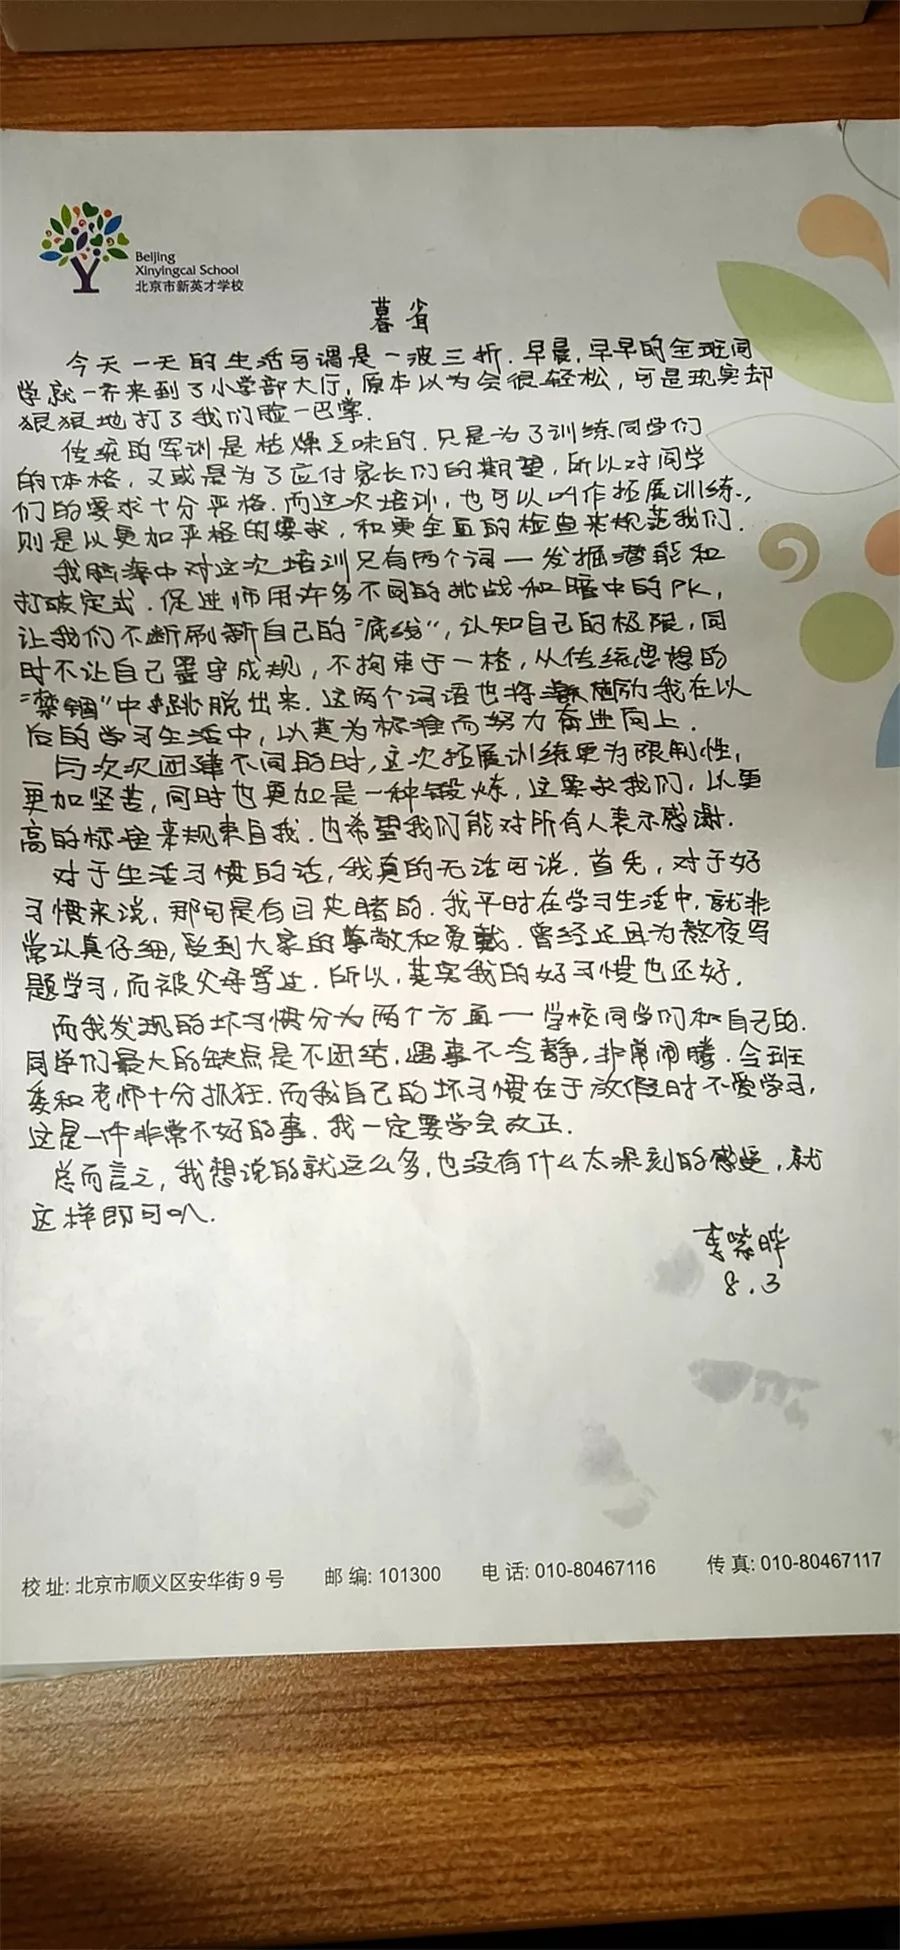 Beijing
Xinyingcai School
北京市新英才学校
暮省
今天一天的生活可谓是一波三折.早晨,早早的全班同
学就一齐来到了小学部大厅,原本以为会很轻松,可是现实却
狠狠地打了我们脸一巴掌.
传统的军训是枯燥乏味的.只是为了训练同学们
的体格,又或是为了应付家长们的期望,所以对同学
们的要求十分严格.而这次培训,也可以叫作拓展训练.,
则是以更加严格的要求,和更全面的检查来规范我们.
我脑海中对这次培训只有两个词—发掘潜能和
打破定式.促进师用许多不同的挑战和暗中的PK,
让我们不断刷新自己的"底线",认知自己的极限,同
时不让自己墨守成规,不拘束于一格,从传统思想的
"禁锢"中跳脱出来.这两个词语也将激励我在以
后的学习生活中,以其为标准而努力奋进向上.
与次次团建不同的时,这次拓展训练更为限制性,
更加坚苦,同时也更加是一种锻炼,这要求我们,以更
高的标准来规束自我.也希望我们能对所有人表示感谢.
对于生活习惯的话,我真的无话可说.首先,对于好
习惯来说,那可是有目共睹的.我平时在学习生活中,就非
常认真仔细,受到大家的尊敬和爱戴.曾经还因为熬夜写
题学习,而被父母骂过.所以,其实我的好习惯也还好.
而我发现的坏习惯分为两个方面—学校同学们和自己的.
同学们最大的缺点是不团结,遇事不冷静,非常闹腾.令班
委和老师十分抓狂.而我自己的坏习惯在于放假时不爱学习,
这是一件非常不好的事.我一定要学会改正.
总而言之,我想说的就这么多,也没有什么太深刻的感受,就
这样即可叭.
李
8.3
校 址: 北京市顺义区安华街 9 号 邮 编: 101300 电 话: 010-80467116 传 真: 010-80467117